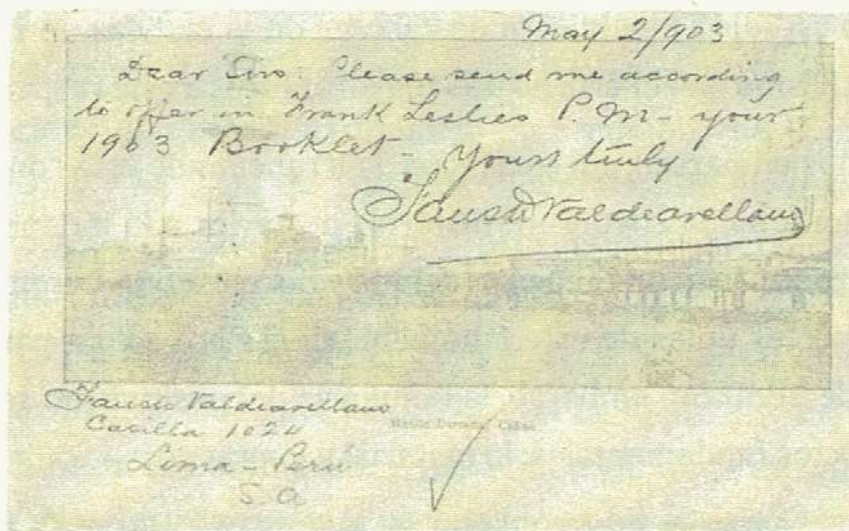 May 2/903
Dear Sirs: Please send me according
to offer in Frank Leslies P. M- your
1903 Booklet- Yours truly
Fausto Valdeavellano
Fausto Valdeavellano
Casilla 1024
Lima - Peru
S. A
Callao